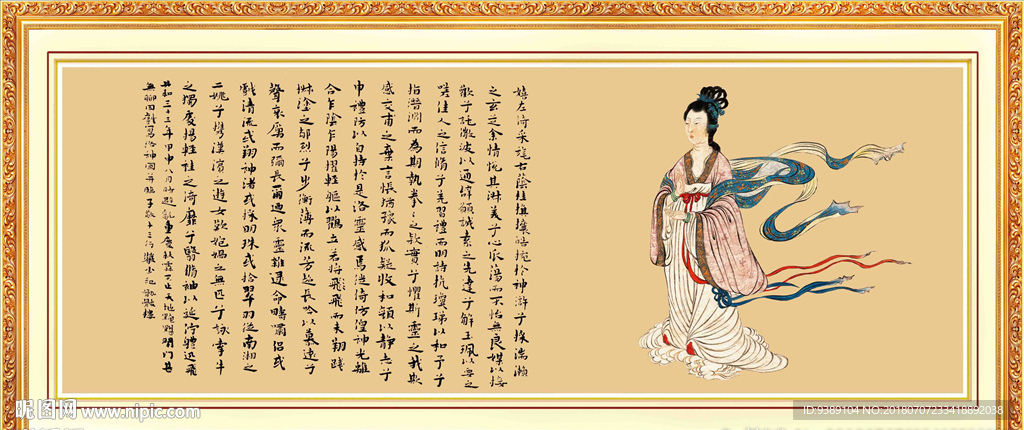 嬉左倚采旄右蔭桂旗攘皓捥於神滸兮採湍瀨
之玄芝余情悅其淋美兮心振蕩而不怡無良媒以接
歡兮託微波以通辭願誠素之先達兮解玉珮以要之
嗟佳人之信脩兮羌習禮而明詩抗瓊珶以和予兮
指潛淵而為期執拳〻之款實兮懼斯靈之我欺
感交甫之棄言悵猶豫而狐疑收和顏以靜志兮
申禮防以自持於是洛靈感焉徙倚仿偟神光離
合乍陰乍陽擢輕軀以鶴立若將飛飛而未翔踐
椒塗之郁烈兮步衡薄而流芳超長吟以慕遠兮
聲哀厲而彌長爾迺衆靈雜遝命疇嘯侶或
戲清流或翔神渚或採明珠或拾翠羽從南湘之
二姚兮攜漢濱之遊女歎匏媧之無匹兮詠牽牛
之獨處揚輕袿之倚靡兮翳脩袖以延佇體迅飛
年甲申八月時
無聊因戲寫洛神圖并臨子敬十三行
昵图网 www.nipic.com
ID:9389104 NO:20180707233418892038